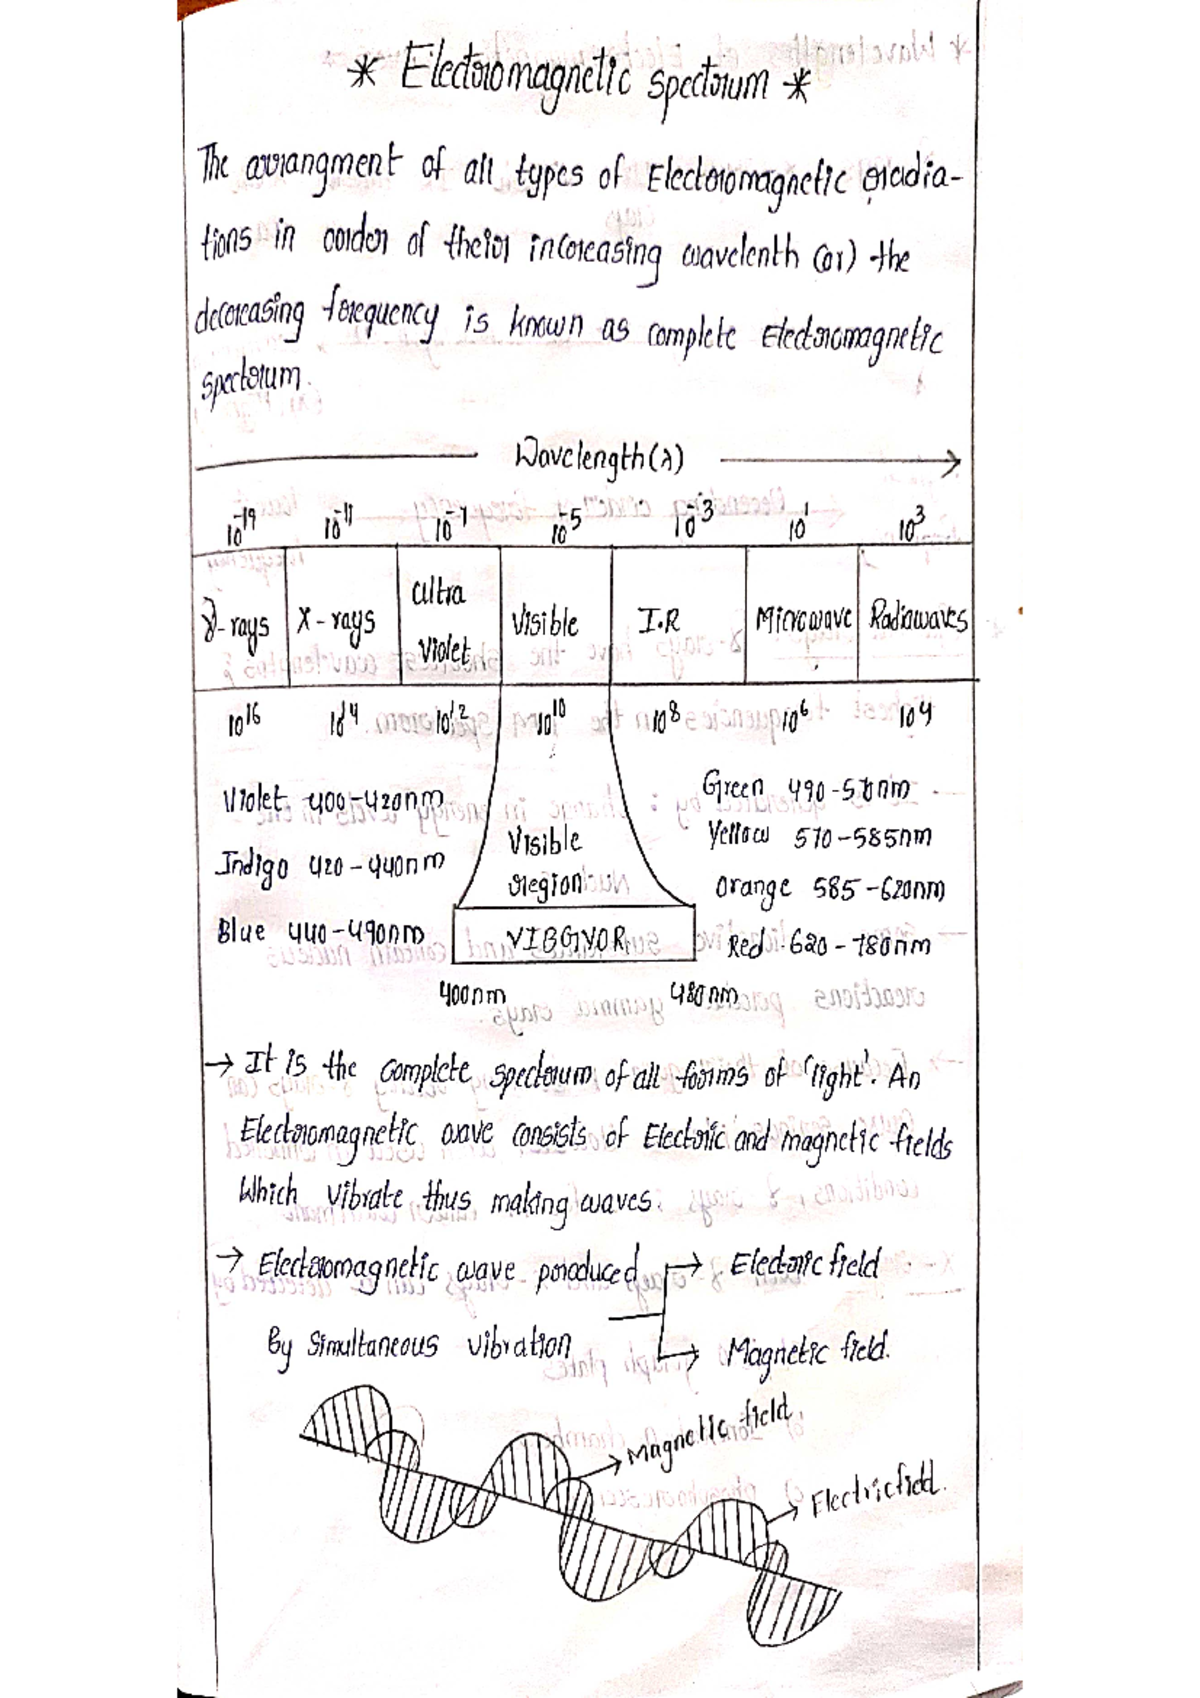 * Electromagnetic spectrum *
The arrangment of all types of Electromagnetic radia-
tions in order of their increasing wavelenth (or) the
decreasing frequency is known as complete Electromagnetic
spectrum.
Wavelength (λ)
10⁻¹⁹ 10⁻¹¹ 10⁻⁷ 10⁻⁵ 10⁻³ 10¹ 10³
γ-rays X-rays Ultra Violet Visible I.R Microwave Radiowaves
10¹⁶ 10¹⁴ 10¹² 10¹⁰ 10⁸ 10⁶ 10⁴
Violet 400-420nm
Indigo 420-440nm
Blue 440-490nm
Visible
region
VIBGYOR
400nm 480nm
Green 490-570nm
Yellow 570-585nm
Orange 585-620nm
Red 620-780nm
→ It is the complete spectrum of all forms of 'light'. An
Electromagnetic wave consists of Electric and magnetic fields
Which vibrate thus making waves.
→ Electromagnetic wave produced → Electric field
By simultaneous vibration → Magnetic field.
→ Magnetic field.
→ Electric field.